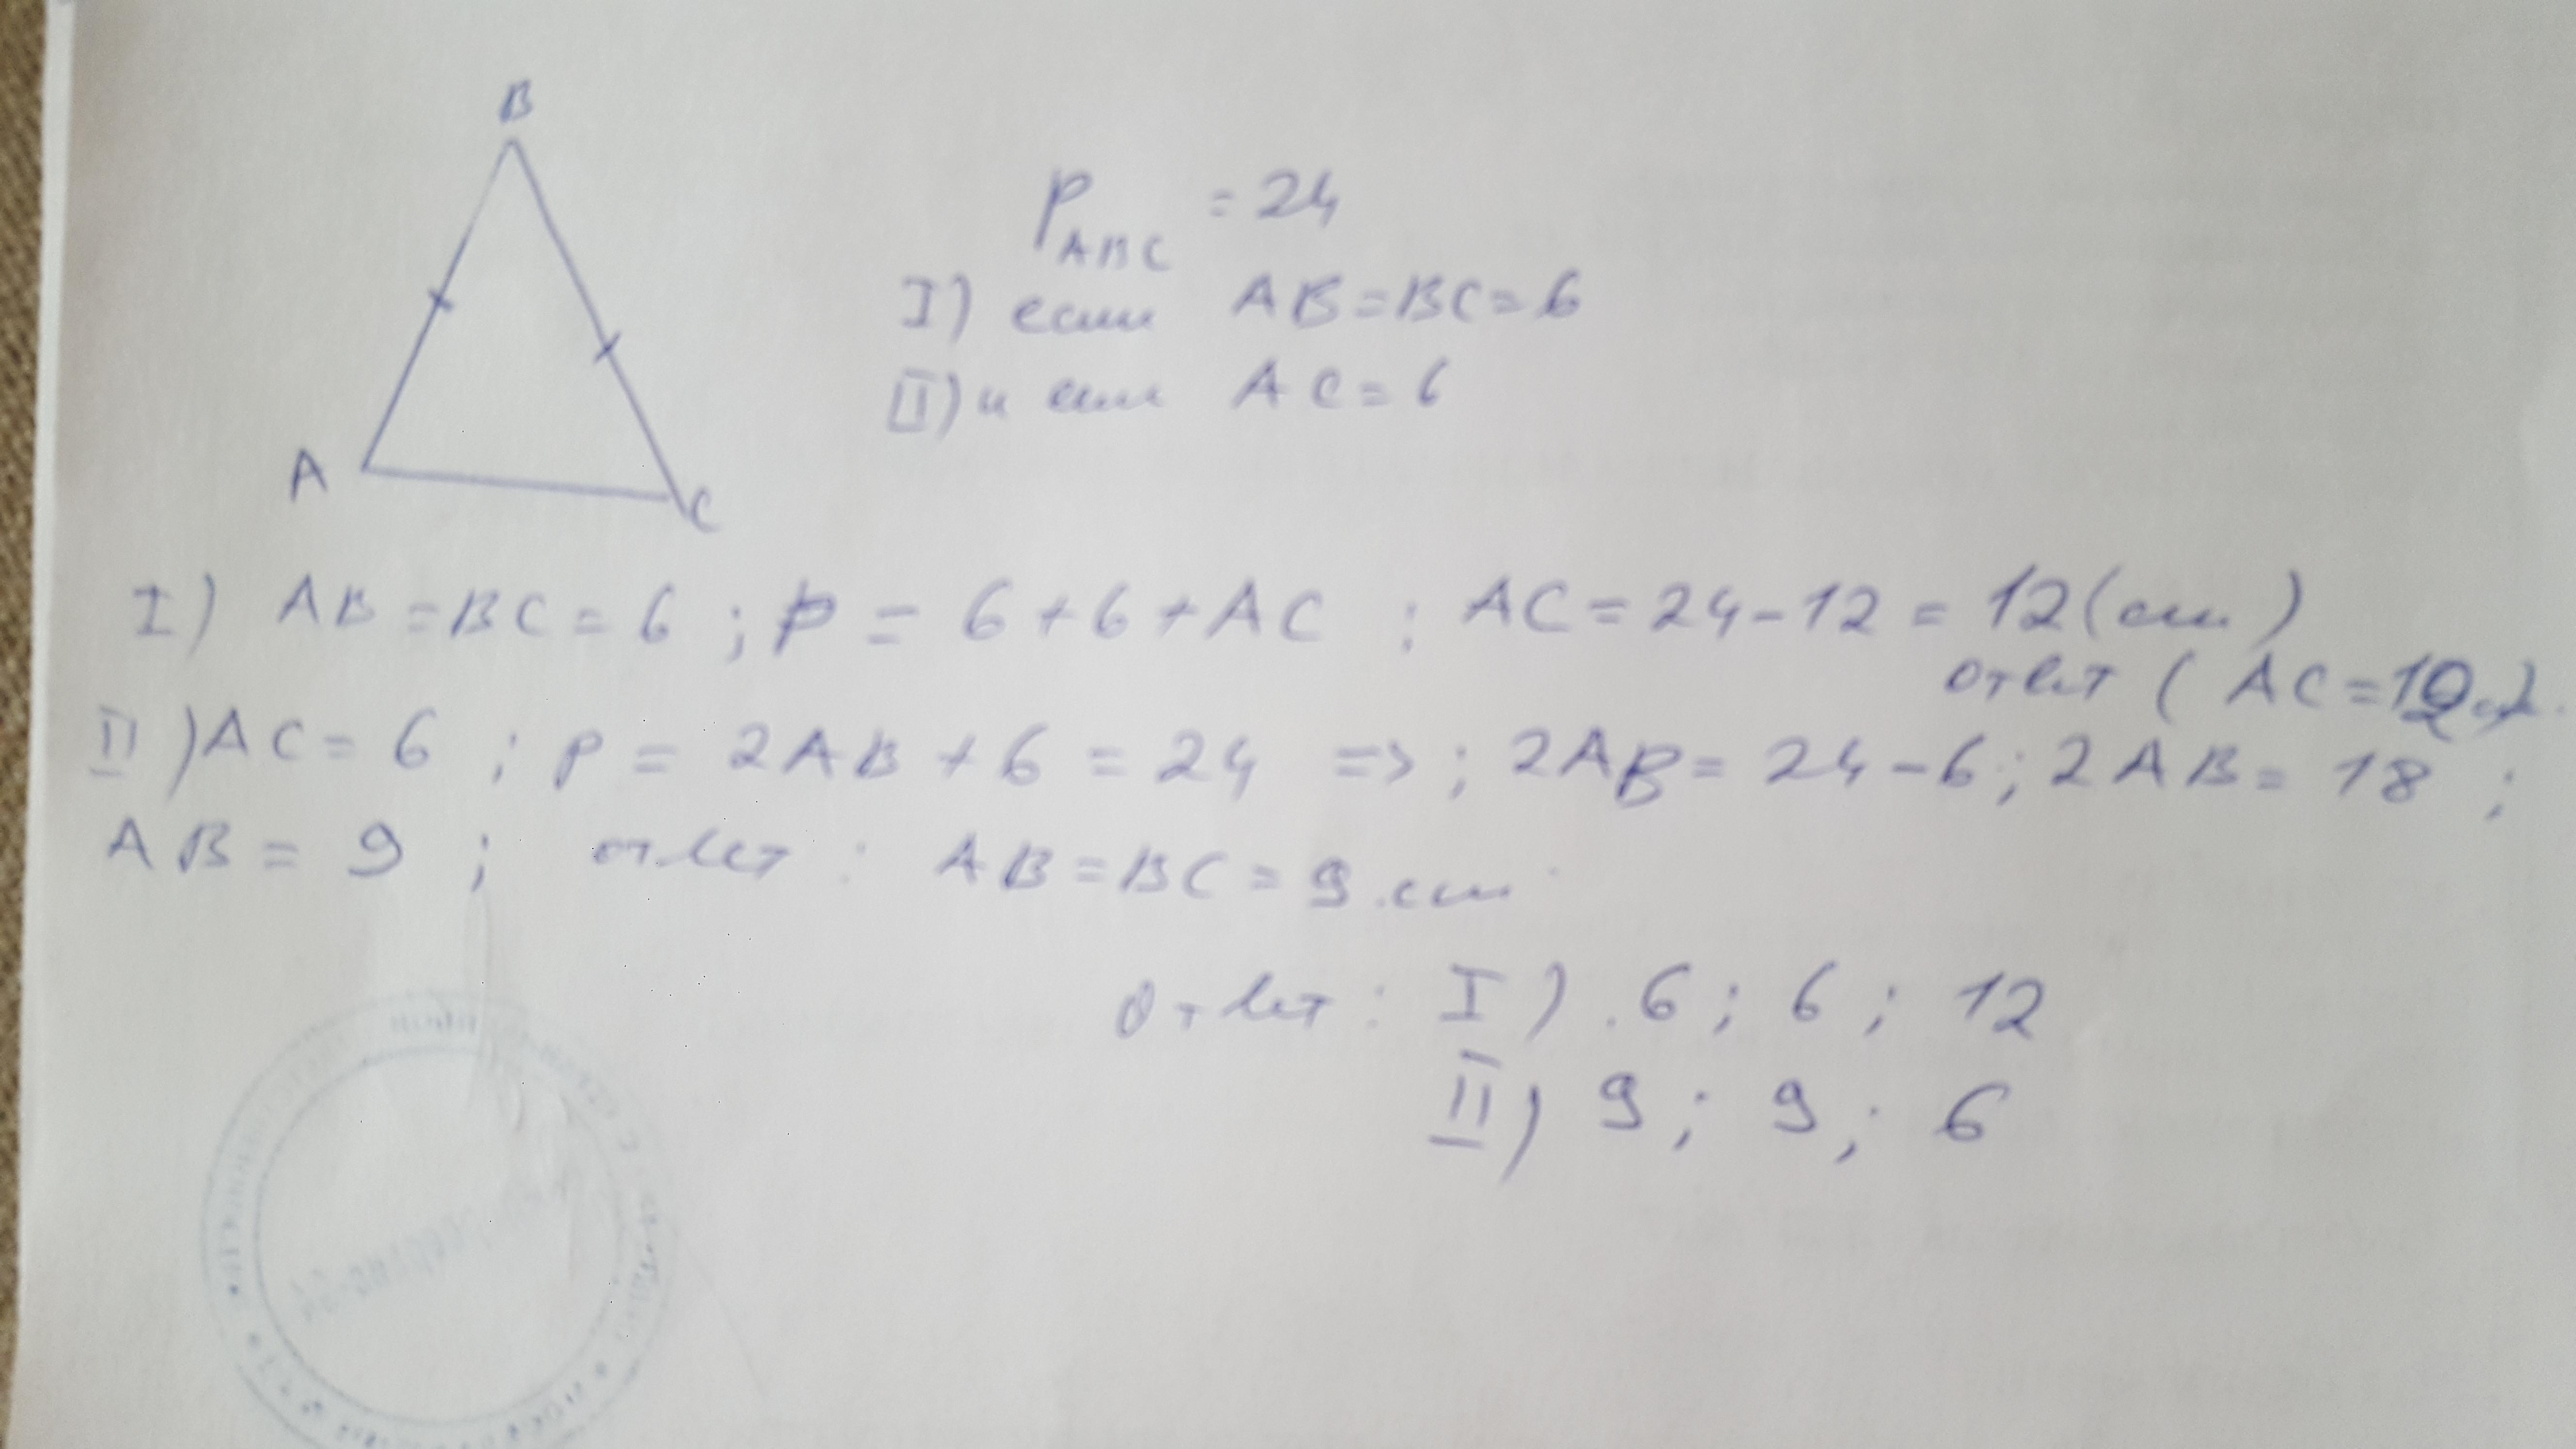 B
A
C
P ABC = 24
I) если AB = BC = 6
II) и если AC = 6
I) AB = BC = 6 ; P = 6 + 6 + AC ; AC = 24 - 12 = 12 (см)
ответ ( AC = 12
II) AC = 6 ; P = 2AB + 6 = 24 => ; 2AB = 24 - 6 ; 2AB = 18 ;
AB = 9 ; ответ : AB = BC = 9 см
Ответ : I) 6 ; 6 ; 12
II) 9 ; 9 ; 6